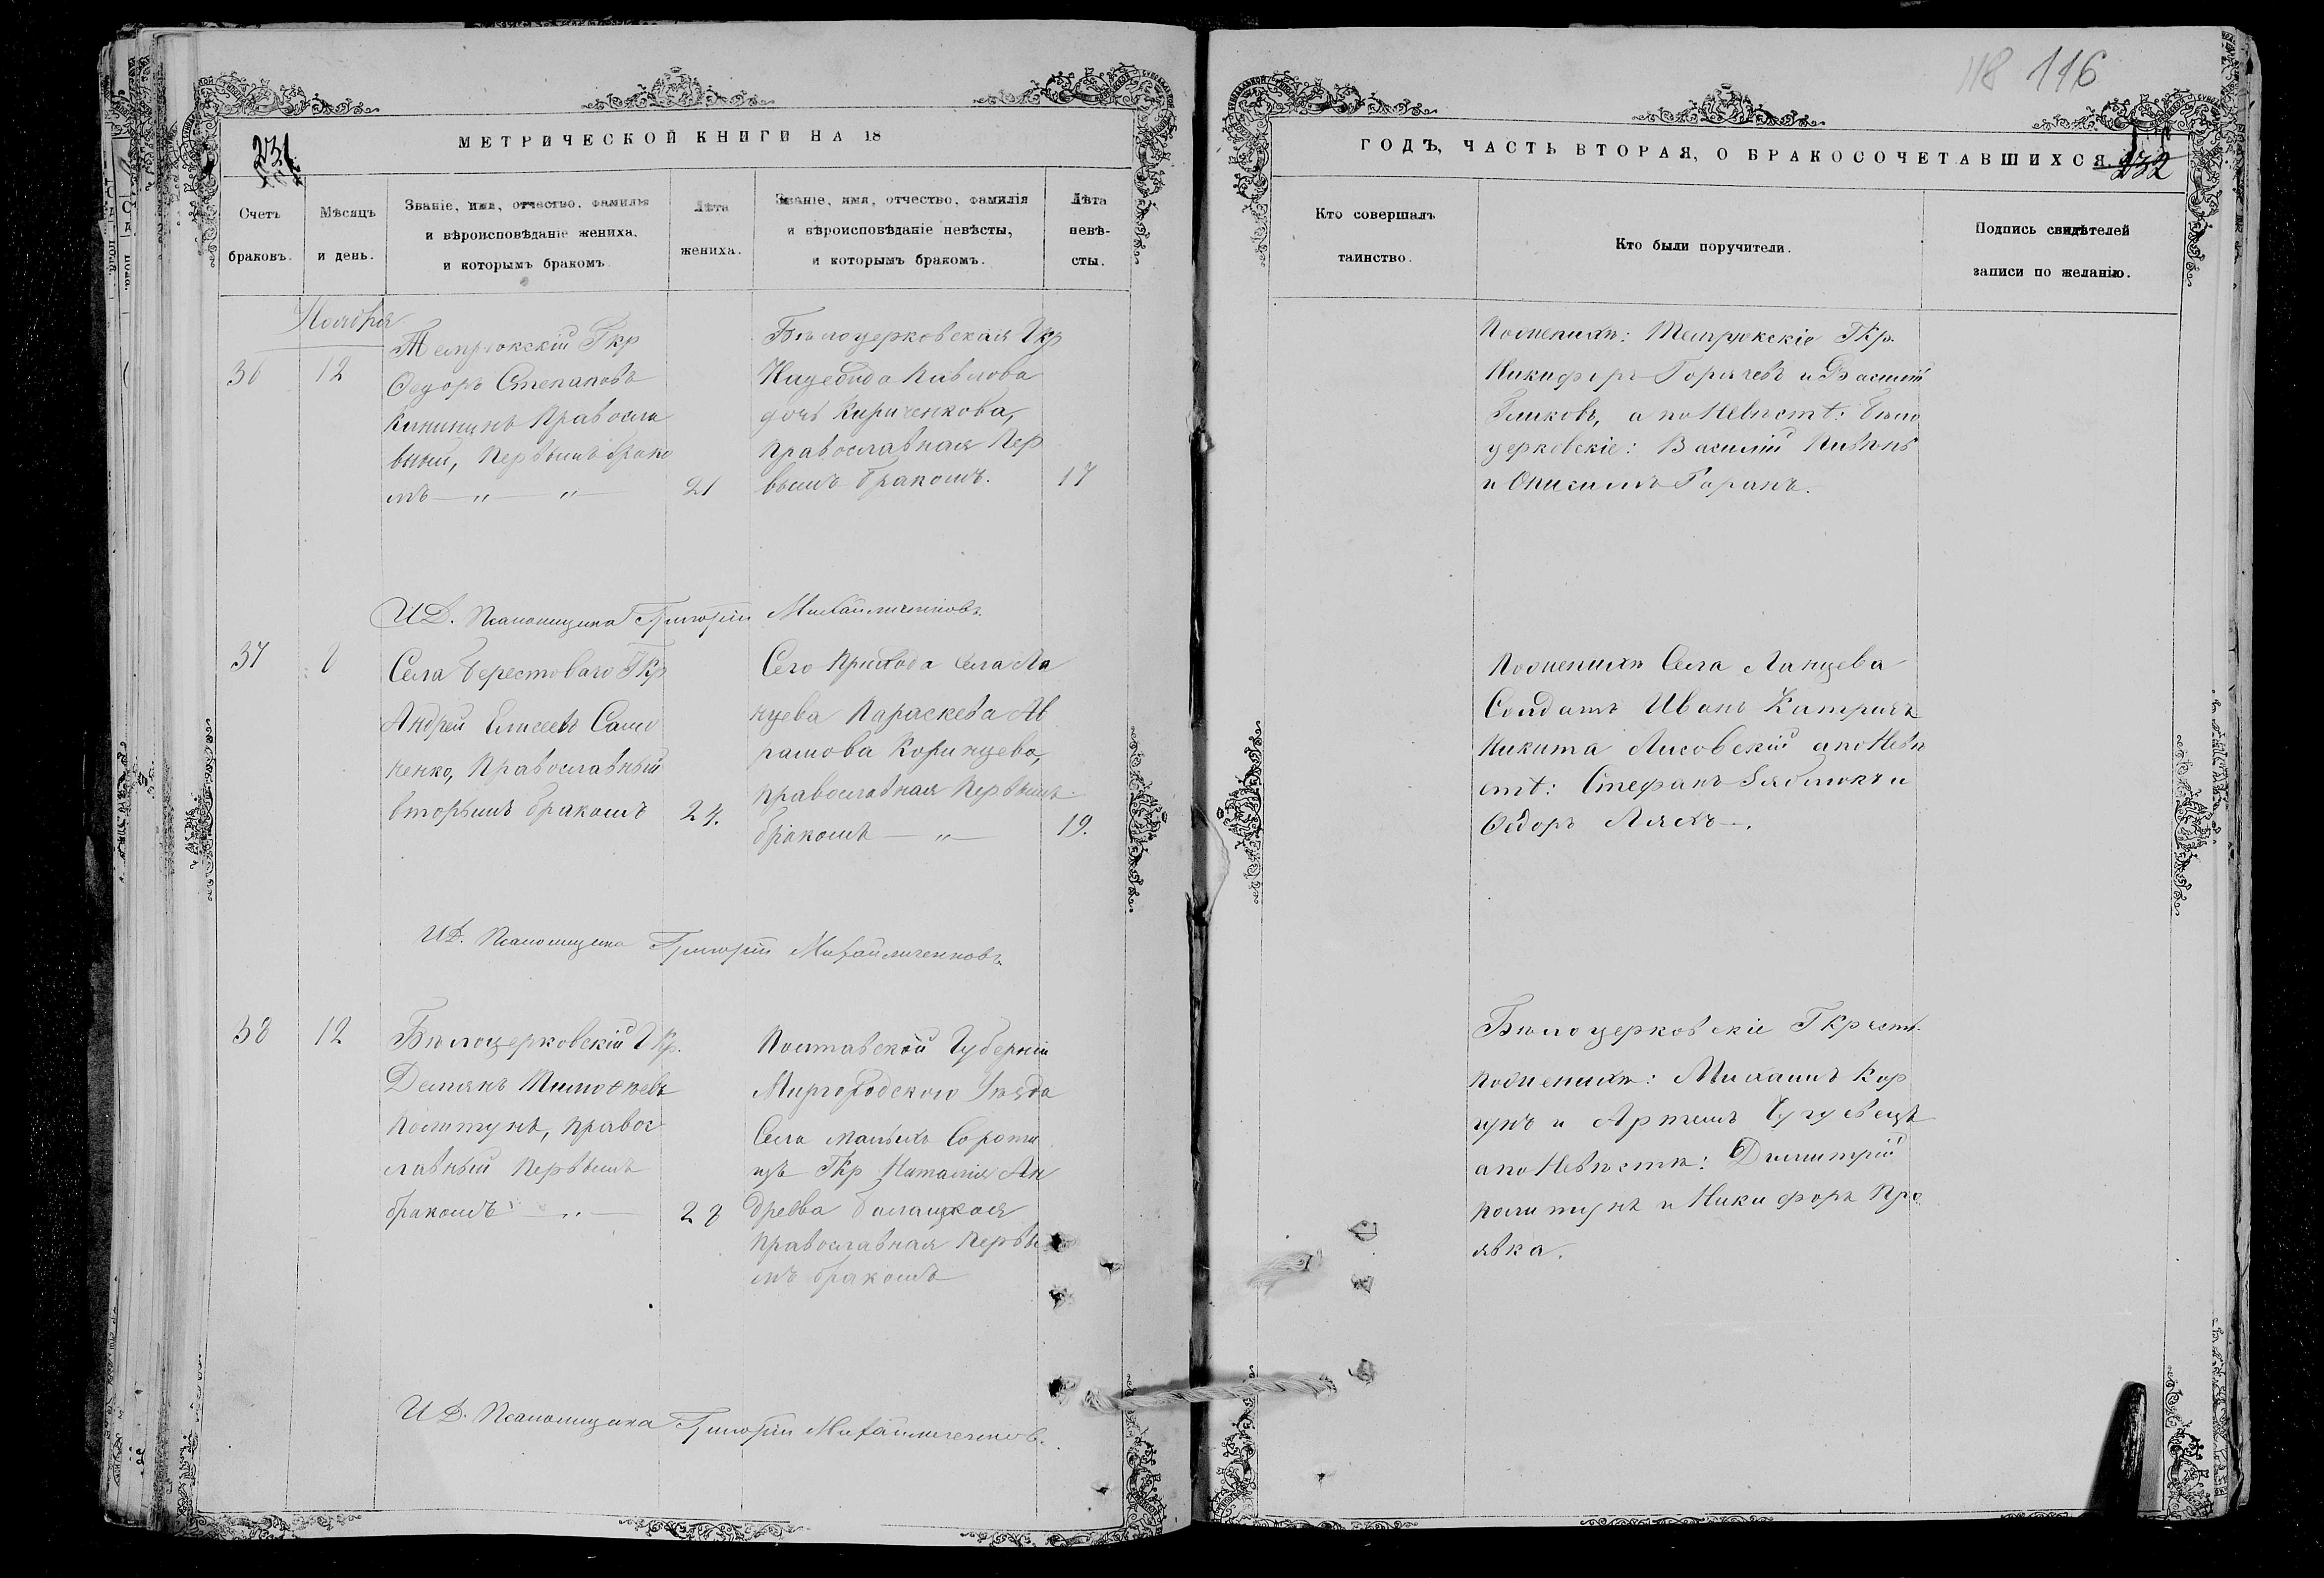 231
МЕТРИЧЕСКОЙ КНИГИ НА 18
Счетъ
браковъ.
Мѣсяцъ
и день.
Званіе, имя, отчество, фамилія
и вѣроисповѣданіе жениха,
и которымъ бракомъ.
Лѣта
жениха.
Званіе, имя, отчество, фамилія
и вѣроисповѣданіе невѣсты,
и которымъ бракомъ.
Лѣта
невѣ-
сты.
Ноября
36
12
Темрюкскій Гкр
Федоръ Степановъ
Калининъ Правосла
вный, Первымъ брако
мъ — „ „ —
21
Бѣлоцерковская Гкр
Надежда Павлова
дочь Кириченкова,
православная Пер
вымъ бракомъ.
17
И.Д. Псаломщика Григорій Михайличенковъ.
37
Села Берестоваго Гкр
Андрей Елисеевъ Само
ненко, Православный
вторымъ бракомъ
24.
Сего Прихода села Ла
нцева Параскева Ав
рамова Коринцева,
православная Первымъ
бракомъ — „ —
19.
И.Д. Псаломщика Григорій Михайличенковъ.
38
12
Бѣлоцерковскій Гкр.
Демянъ Тимофѣевъ
Колтунъ, правос
лавный Первымъ
бракомъ — „ —
28
Полтавской Губерніи
Миргородского Уѣзда
Села малыхъ Сороти
цъ Гкр Наталія Ан
дреева
православная Первы
мъ бракомъ
И.Д. Псаломщика Григорій Михайличенковъ.
118 116
ГОДЪ, ЧАСТЬ ВТОРАЯ, О БРАКОСОЧЕТАВШИХСЯ.
232
Кто совершалъ
таинство.
Кто были поручители.
Подпись свидѣтелей
записи по желанію.
По женихѣ: Темрюкскіе Гкр.
Никифоръ Горачевъ и Василій
а по Невѣстѣ: Бѣло
церковскіе: Василій Пивень
и Онисимъ Горанъ.
По женихѣ Села Ланцева
Солдатъ Иванъ
Никита Лисовскій а по Невѣ
стѣ: Стефанъ Зяблюкъ и
Федоръ Ляхъ —.
Бѣлоцерковскіе Гкрест.
по женихѣ: Михаилъ Кор
гунъ и Артемъ Чугуевецъ
а по Невѣстѣ: Димитрій
Колтунъ и Никифоръ Про
явка.